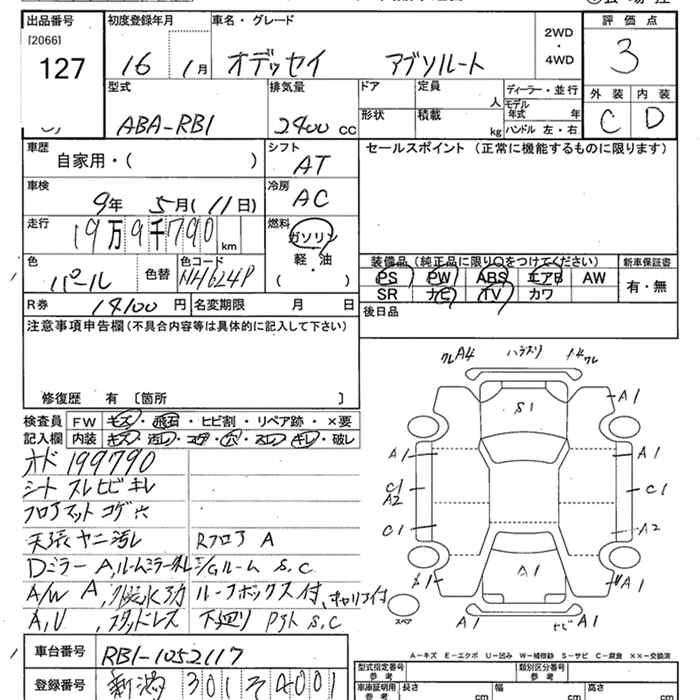 出品番号 初度登録年月 車名・グレード 2WD・4WD 評価点
[2066]
127 16 1月 オデッセイ アブソルート 3
型式 排気量 ドア 定員 人 ディーラー・並行 外装 内装
ABA-RB1 2400 cc 形状 積載 kg モデル年式 年 ハンドル 左・右 C D
車歴 シフト セールスポイント (正常に機能するものに限ります)
自家用・( ) AT
車検 冷房
9年 5月(11日) AC
走行 燃料
19万9千790km ガソリン
軽・油
色 色替 色コード ・ 装備品 (純正品に限り○をつけてください) 新車保証書
パール NH624P ( ) PS PW ABS エアB AW 有・無
SR ナビ TV カワ
R券 14100円 名変期限 月 日 後日品
注意事項申告欄(不具合内容等は具体的に記入して下さい)
修復歴 有 〔箇所 〕
検査員 FW キズ・飛石・ヒビ割・リペア跡・×要
記入欄 内装 キズ・汚レ・コゲ・穴・スレ・キレ・破レ
オド 199790
シート スレヒビキレ
フロアマット コゲ穴
天張ヤニ汚レ RフロアA
Dミラー A,ルームミラー外レ Gルーム S,C
A/W A, ルーフボックス付,キャリア付
A,U, スタッドレス 下廻り P3ト S,C
A4 ハラスリ
A1 S1 A1
A1 A1
C1 C1
A2 A2
C1
A1 A1
A1 ヒビ A1
スペア
A-キズ E-エクボ U-凹み W-補修跡 S-サビ C-腐食 ××-交換済
車台番号 RB1-1052117 型式指定番号 参考 類別区分番号 参考
登録番号 新潟 301 そ 4001 車庫証明用 参考 長さ cm 幅 cm 高さ cm